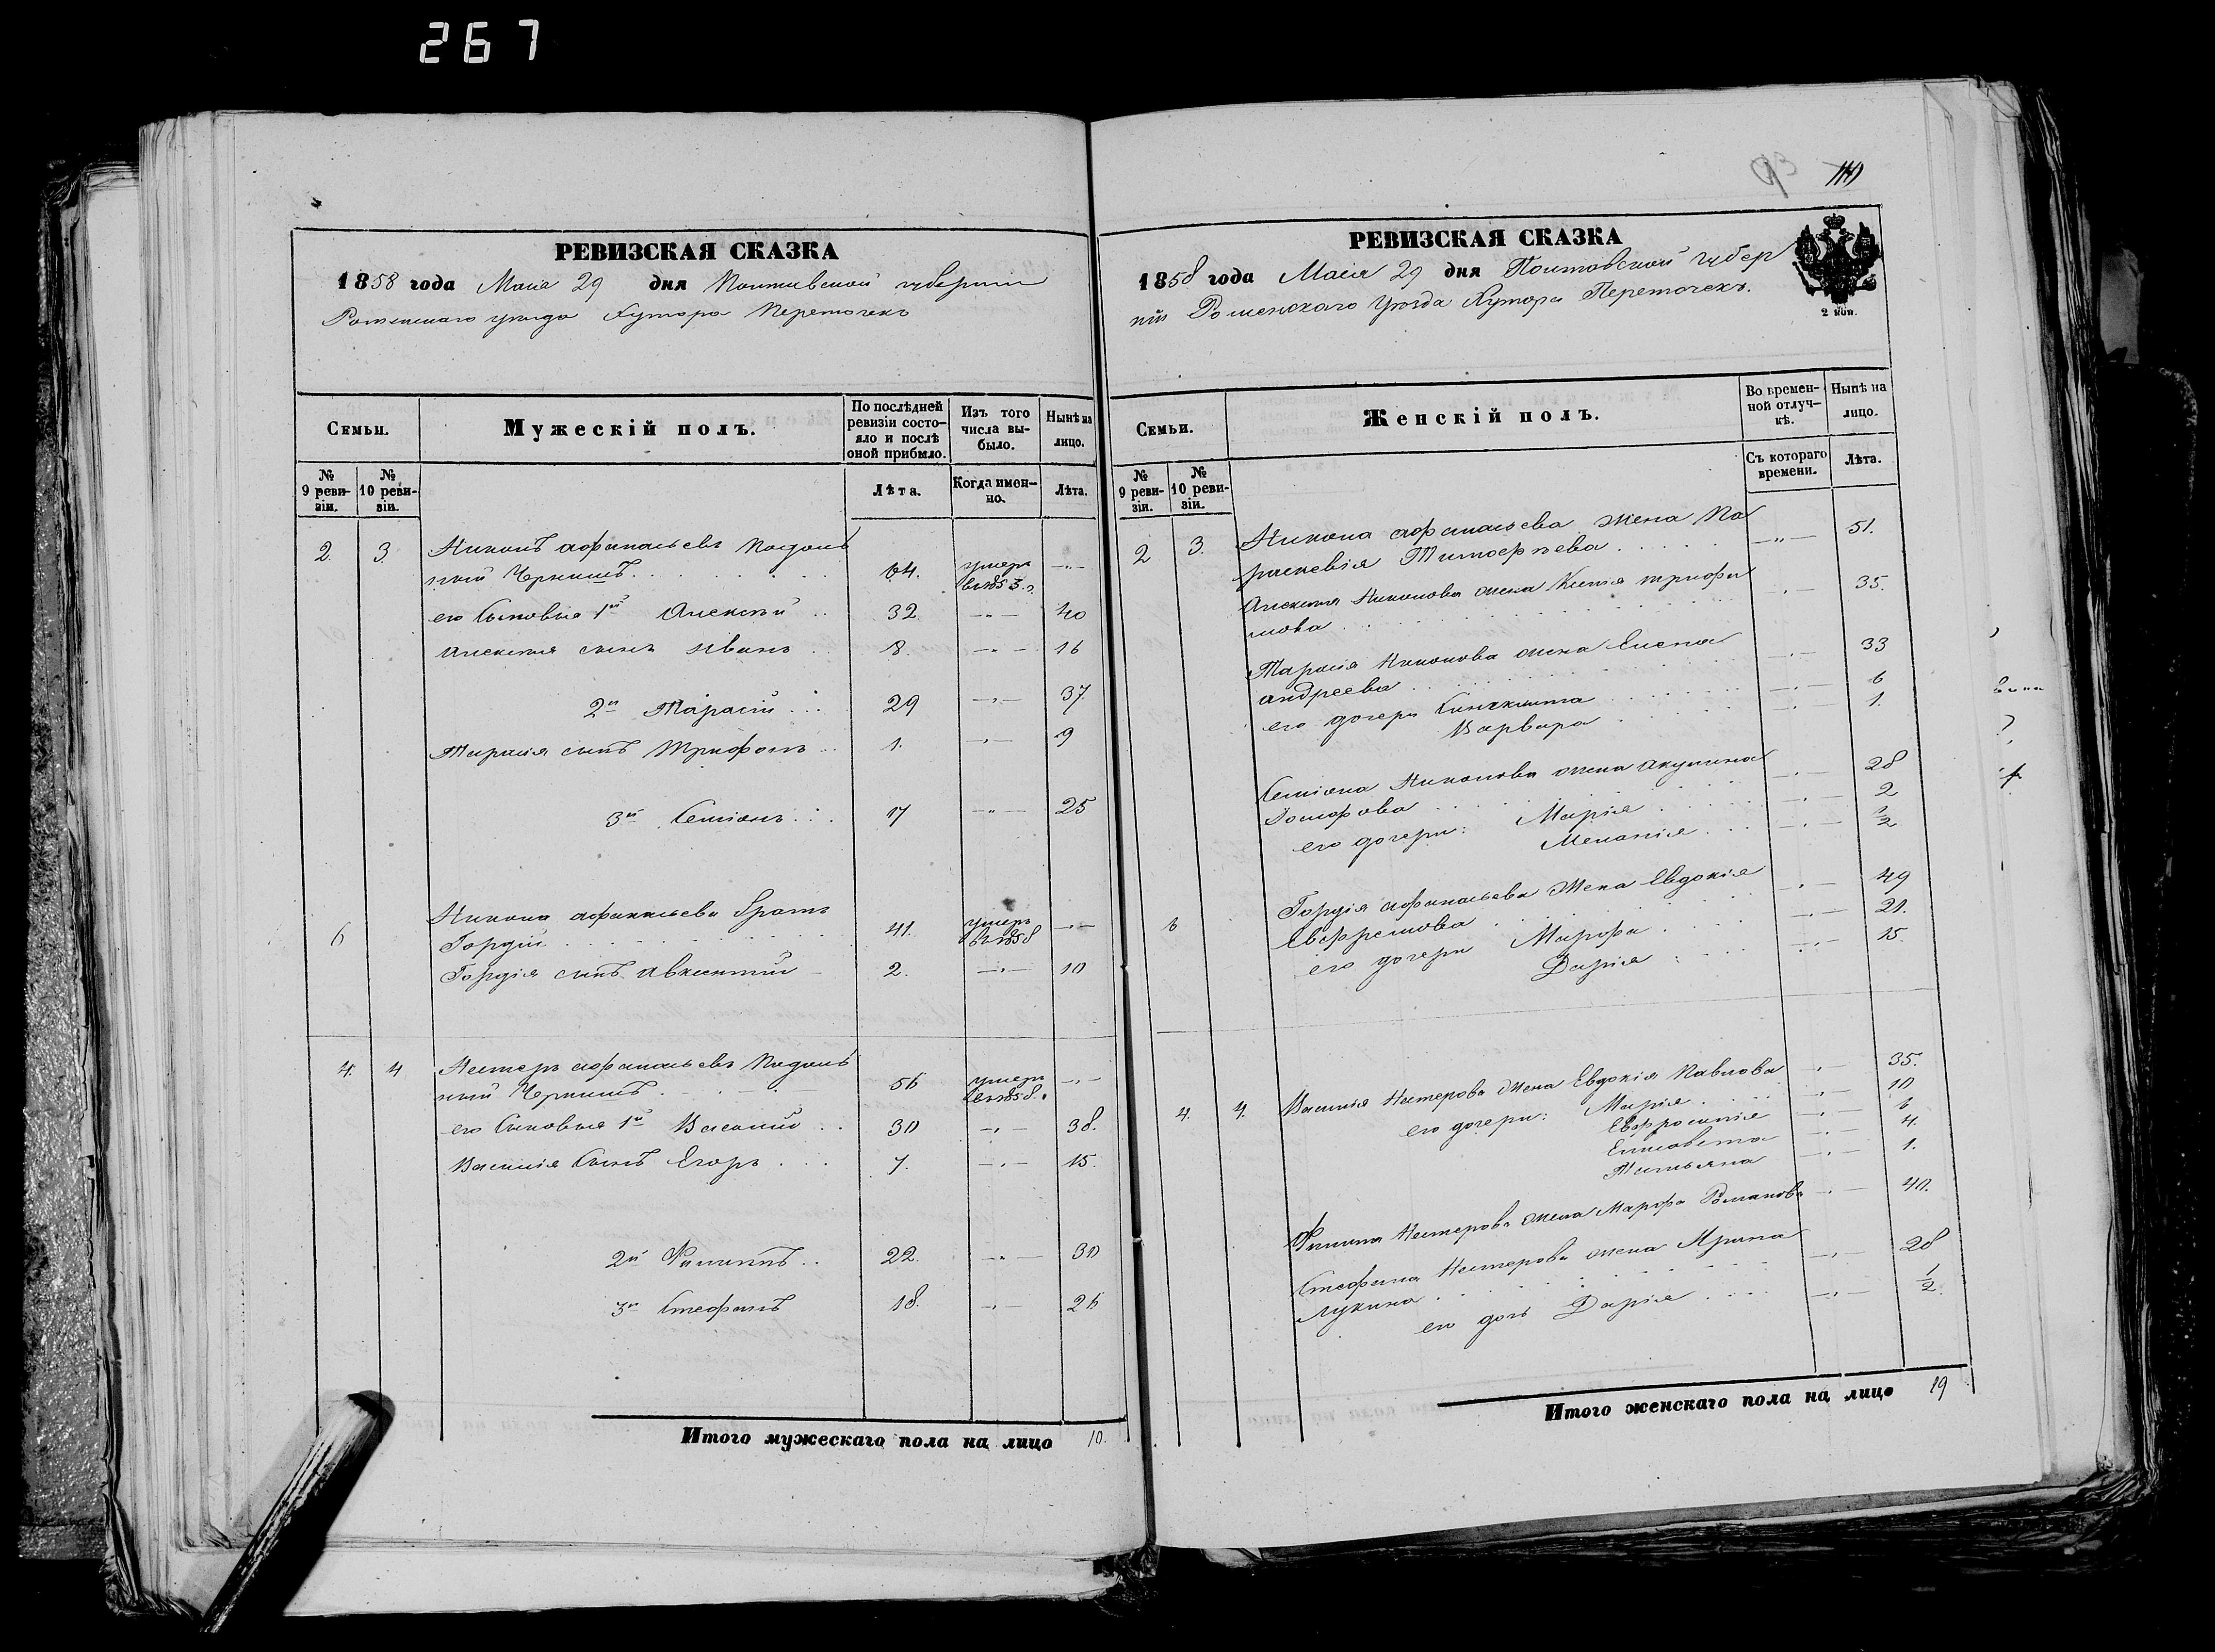 267
РЕВИЗСКАЯ СКАЗКА
1858 года Маія 29 дня Полтавской губерніи
Роменскаго уѣзда Хутора Переточекъ
Семьи.
Мужескій полъ.
По послѣдней ревизіи состояло и послѣ оной прибыло.
Изъ того числа выбыло.
Нынѣ на лицо.
№ 9 ревизіи.
№ 10 ревизіи.
Лѣта.
Когда именно.
Лѣта.
2. 3. Никонъ Афанасьевъ Подоль
ный Чернышъ 64. умеръ въ 1853 г. —„—
его Сыновья 1й Алексѣй 32. —„— 40
Алексѣя сынъ Иванъ 8. —„— 16
2й Тарасій 29 —„— 37.
Тарасія сынъ Трифонъ 1. —„— 9
3й Семіонъ 17 —„— 25
Никона Афанасьева Братъ
6 Гордій 41. умеръ въ 1858 —„—
Гордія сынъ Авксентій 2. —„— 10
4. 4 Нестеръ Афанасьевъ Подоль
ный Чернышъ 56 умеръ въ 1858. —„—
его Сыновья 1й Василий 30 —„— 38.
Василія Сынъ Егоръ 7. —„— 15.
2й Филиппъ 22. —„— 30
3й Стефанъ 18. —„— 26
Итого мужескаго пола на лицо 10.
110
РЕВИЗСКАЯ СКАЗКА
1858 года Маія 29 дня Полтавской губер
ніи Роменскаго Уѣзда Хутора Переточекъ.
2 коп.
Семьи.
Женскій полъ.
Во временной отлучкѣ.
Нынѣ на лицо.
№ 9 ревизіи.
№ 10 ревизіи.
Съ котораго времени.
Лѣта.
2 3. Никона Афанасьева Жена Па
раскевія Тимофѣева —„— 51.
Алексѣя Никонова жена Ксенія Трифи
мова —„— 35.
Тарасія Никонова жена Елена
Андреева —„— 33
его дочери —„— 6
Варвара —„— 1.
Семіона Никонова жена Акулина
—„— 28
его дочери: Марія —„— 2
Меланія —„— 1/2
Гордія Афанасьева Жена Евдокія
6 Ефремова —„— 49
его дочери Марфа —„— 21.
Дарія —„— 15.
4. 4. Василія Нестерова Жена Евдокія Павлова —„— 35.
его дочери: Марія —„— 10
Евфросинія —„— 6
Елисавета —„— 4.
Татьяна —„— 1.
Филиппа Нестерова жена Марфа Романова —„— 40.
Стефана Нестерова жена Ирина
Лукина —„— 28
его дочь Дарія —„— 1/2.
Итого женскаго пола на лицо 19